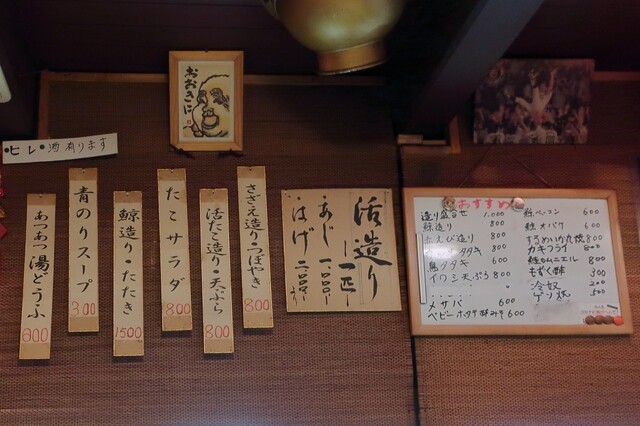 おおきに
・ヒレ・酒有ります
あつあつ湯どうふ 800
青のりスープ 300
鯨造り・たたき 1500
たこサラダ 800
活たこ造り・天ぷら 800
さざえ造り・つぼやき 800
活造り
一匹
あじ 一、〇〇〇
はげ 二、〇〇〇
おすすめ
造り盛合せ 1,000
鯨造り 800
赤えび造り 800
タタキ 800
タタキ 600
イワシ天ぷら 800
〆サバ 600
ベビーホタテ酢みそ 600
鯨ベーコン 600
鯨オバケ 600
するめいか丸焼 800
カキフライ 800
ムニエル 800
もずく酢 300
冷奴 200
ゲソ焼 500